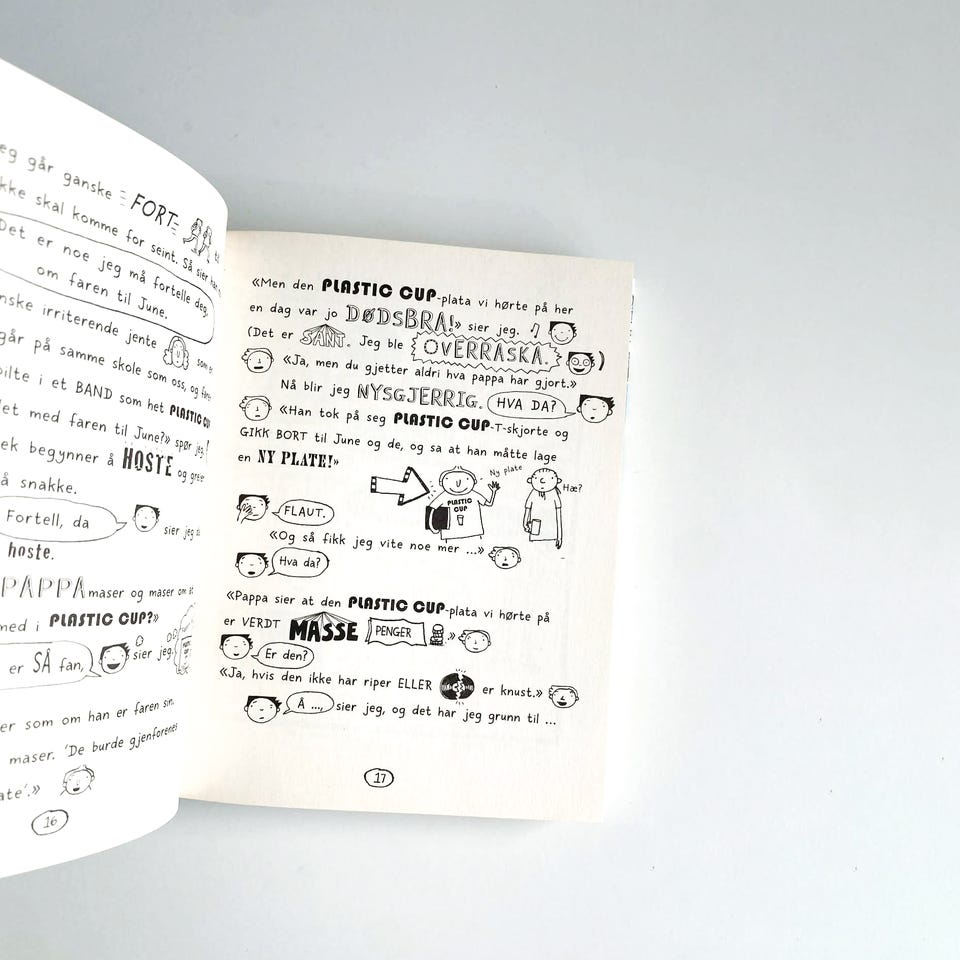 går ganske FORT
skal komme for seint. Så sier
Det er noe jeg må fortelle deg,
om faren til June.
irriterende jente som
går på samme skole som oss, og
i et BAND som het PLASTIC CUP
med faren til June?» spør jeg.
begynner å HOSTE og
å snakke.
Fortell, da
sier jeg
hoste.
PAPPA maser og maser om at
med i PLASTIC CUP?»
er SÅ fan,
sier jeg.
som om han er faren sin.
maser. 'De burde gjenforenes
16
«Men den PLASTIC CUP-plata vi hørte på her
en dag var jo DØDSBRA!» sier jeg.
(Det er SANT. Jeg ble OVERRASKA.)
«Ja, men du gjetter aldri hva pappa har gjort.»
Nå blir jeg NYSGJERRIG. HVA DA?
«Han tok på seg PLASTIC CUP-T-skjorte og
GIKK BORT til June og de, og sa at han måtte lage
en NY PLATE!»
Ny plate
Hæ?
PLASTIC
CUP
FLAUT.
«Og så fikk jeg vite noe mer ...»
Hva da?
«Pappa sier at den PLASTIC CUP-plata vi hørte på
er VERDT MASSE PENGER.»
Er den?
«Ja, hvis den ikke har riper ELLER er knust.»
Å ..., sier jeg, og det har jeg grunn til ...
17